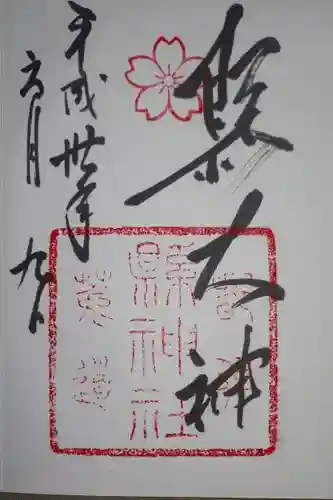 縣大神
平成卅年
六月九日
縣神社